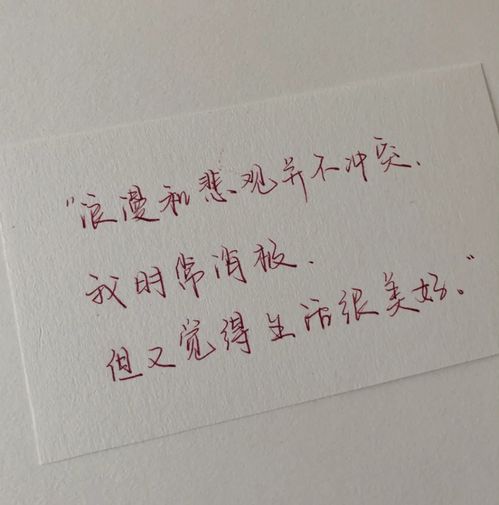 "浪漫和悲观并不冲突.
我时常消极.
但又觉得生活很美好。"